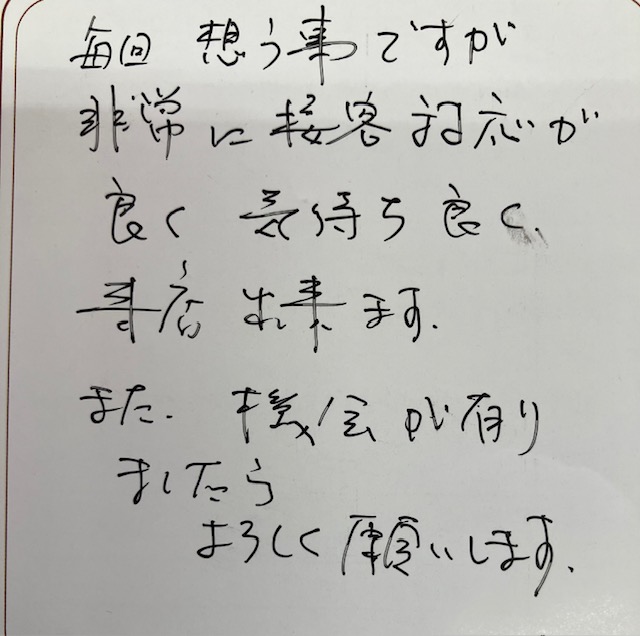 毎回 想う事ですが
非常に接客対応が
良く 気持ち良く、
来店 出来ます。
また、機会が有り
ましたら
よろしく願いします。